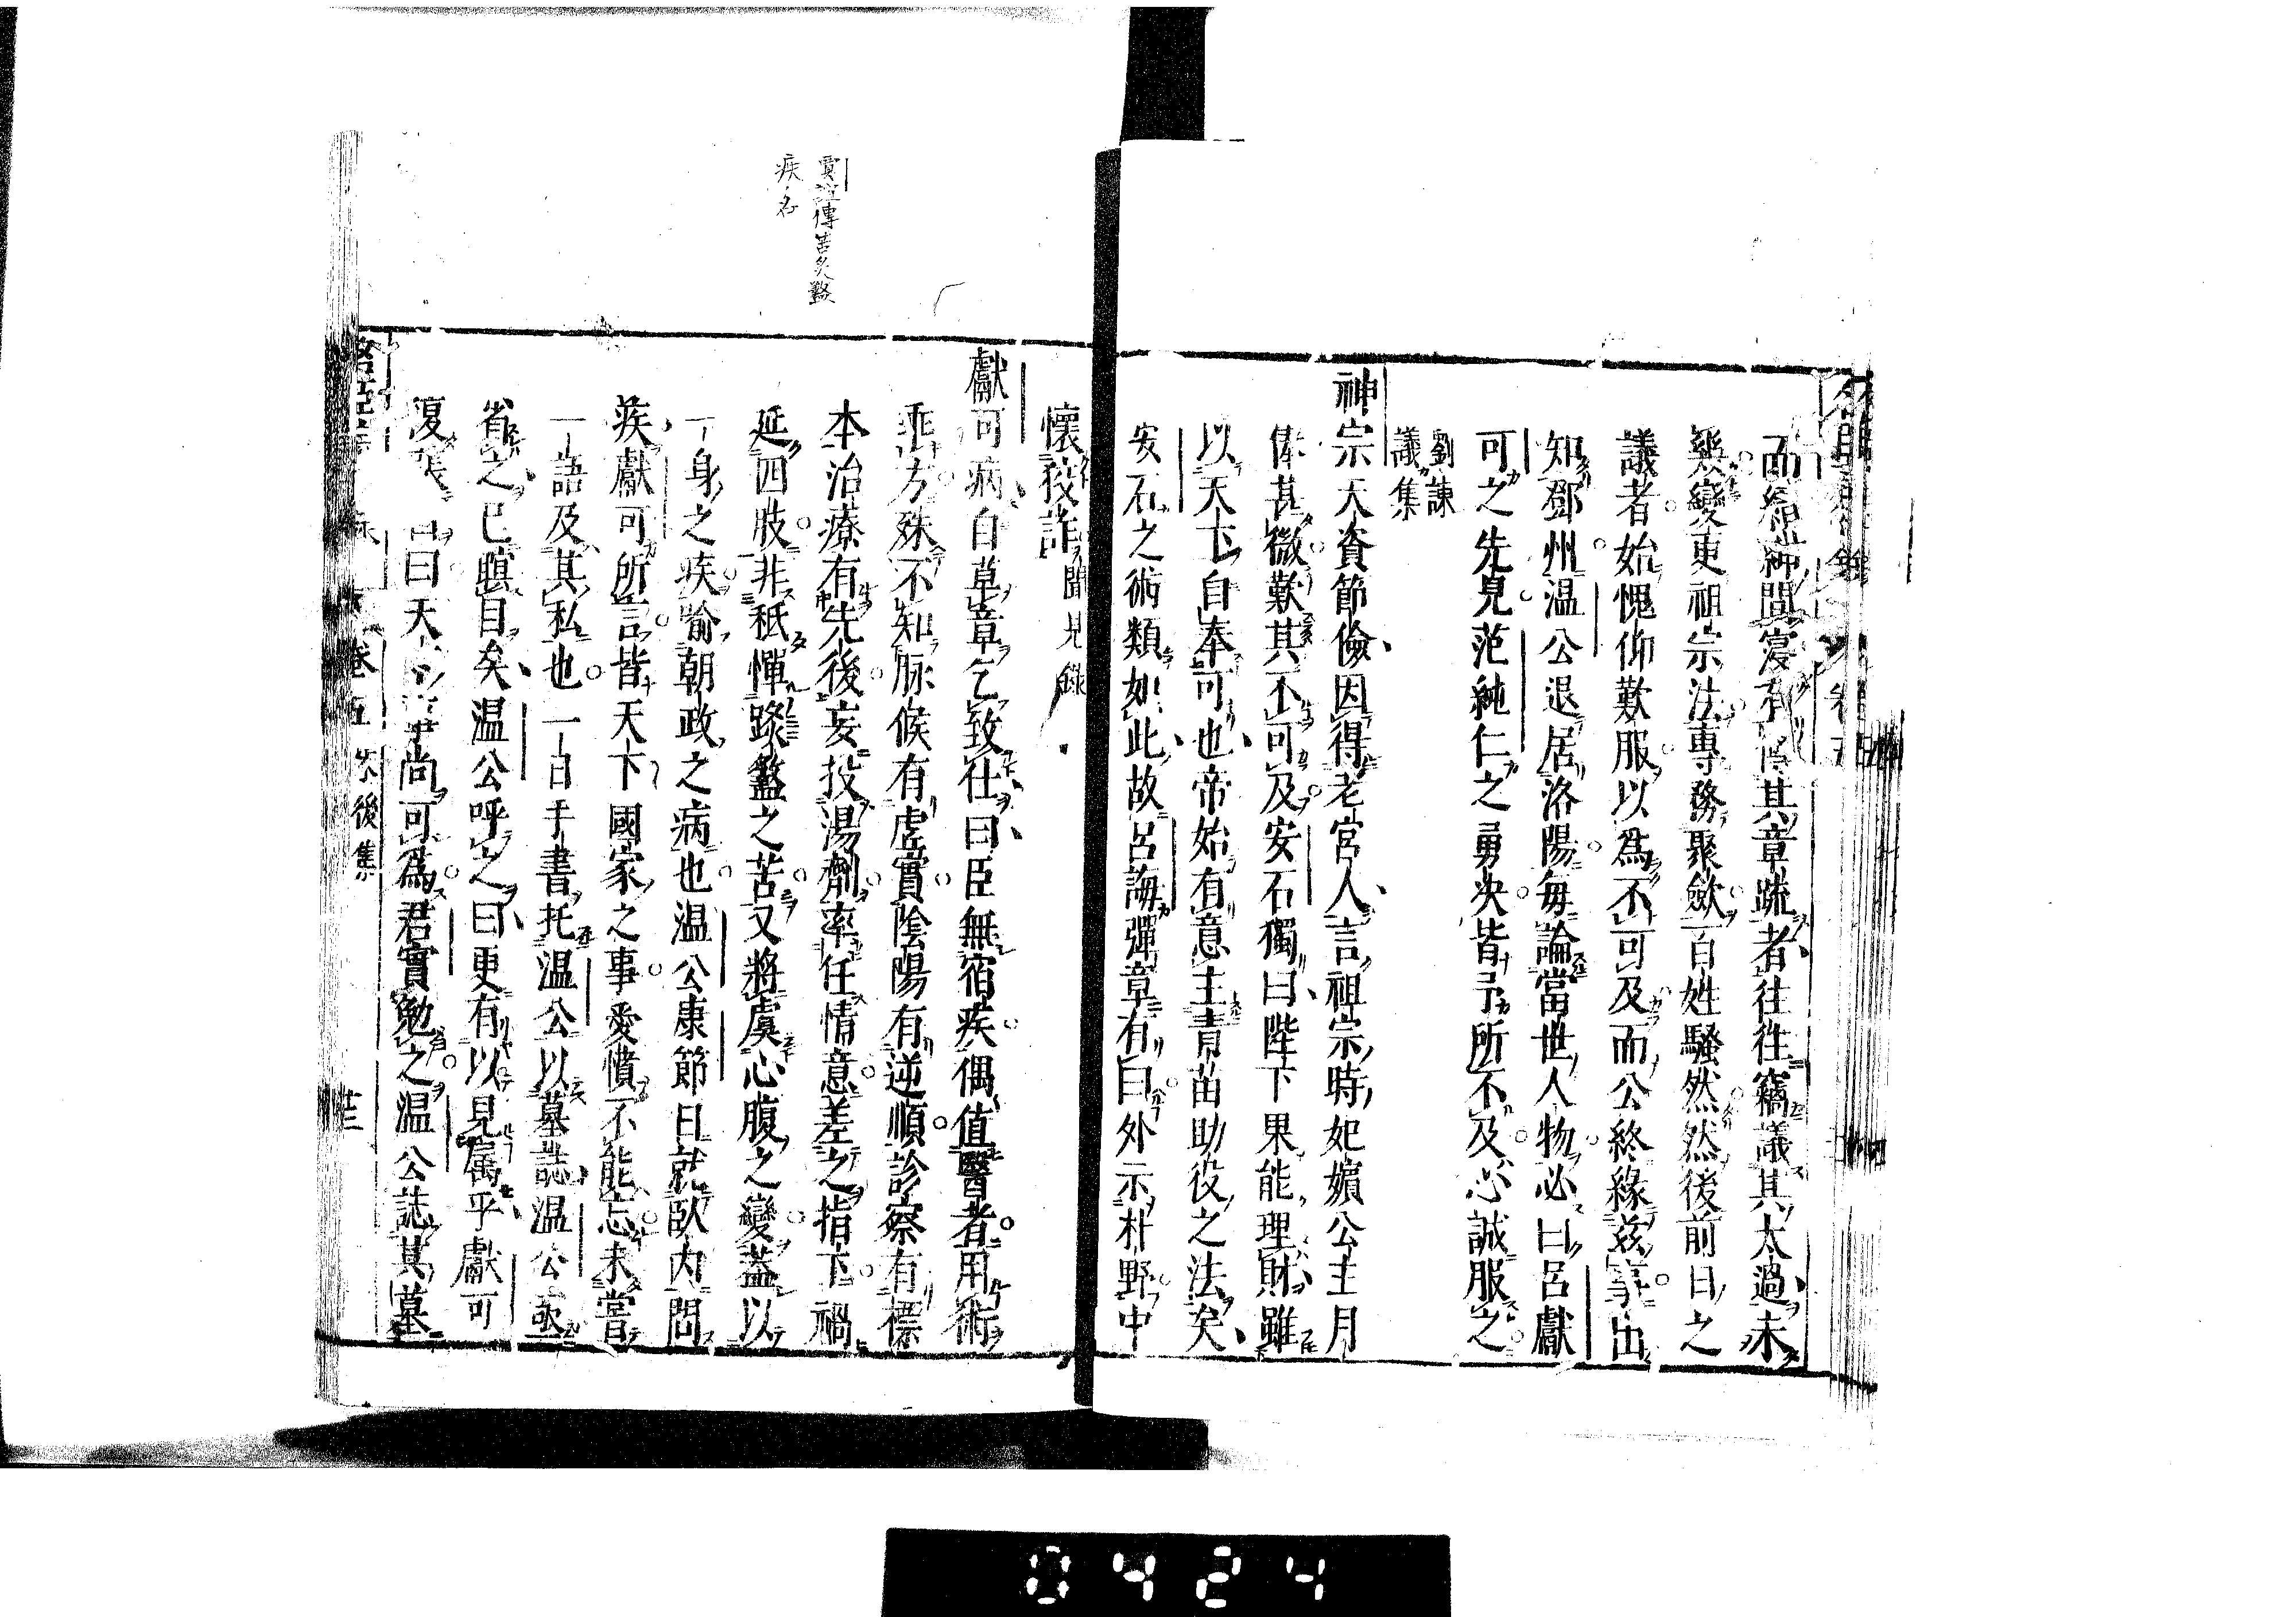 而縉紳間寖有傳其章疏者往往竊議其太過未
幾變更祖宗法專務聚斂百姓騷然然後前日之
議者始愧仰歎服以爲不可及而公終緣茲事出
知鄧州温公退居洛陽每論當世人物必曰呂獻
可之先見范純仁之勇決皆予所不及心誠服之
劉諫
議集
神宗天資節儉因得老宮人言祖宗時妃嬪公主月
俸甚微歎其不可及安石獨曰陛下果能理財雖
以天下自奉可也帝始有意主青苗助役之法矣
安石之術類如此故呂誨彈章有曰外示朴野中
懷狡詐聞見錄
獻可病自草章乞致仕曰臣無宿疾偶值醫者用術
乖方殊不知脉候有虛實陰陽有逆順診察有標
本治療有先後妄投湯劑率任情意差之指下禍
延四肢非秖憚蹂盭之苦又將虞心腹之變蓋以
一身之疾喻朝政之病也温公康節日就臥内問
疾獻可所言皆天下國家之事憂憤不能忘未嘗
一語及其私也一日手書托温公以墓誌温公亟
省之已瞑目矣温公呼之曰更有以見屬乎獻可
復張目曰天下事尚可爲君實勉之温公誌其墓
賈誼傳苦炙盭
疾名
卷五
後集
0424